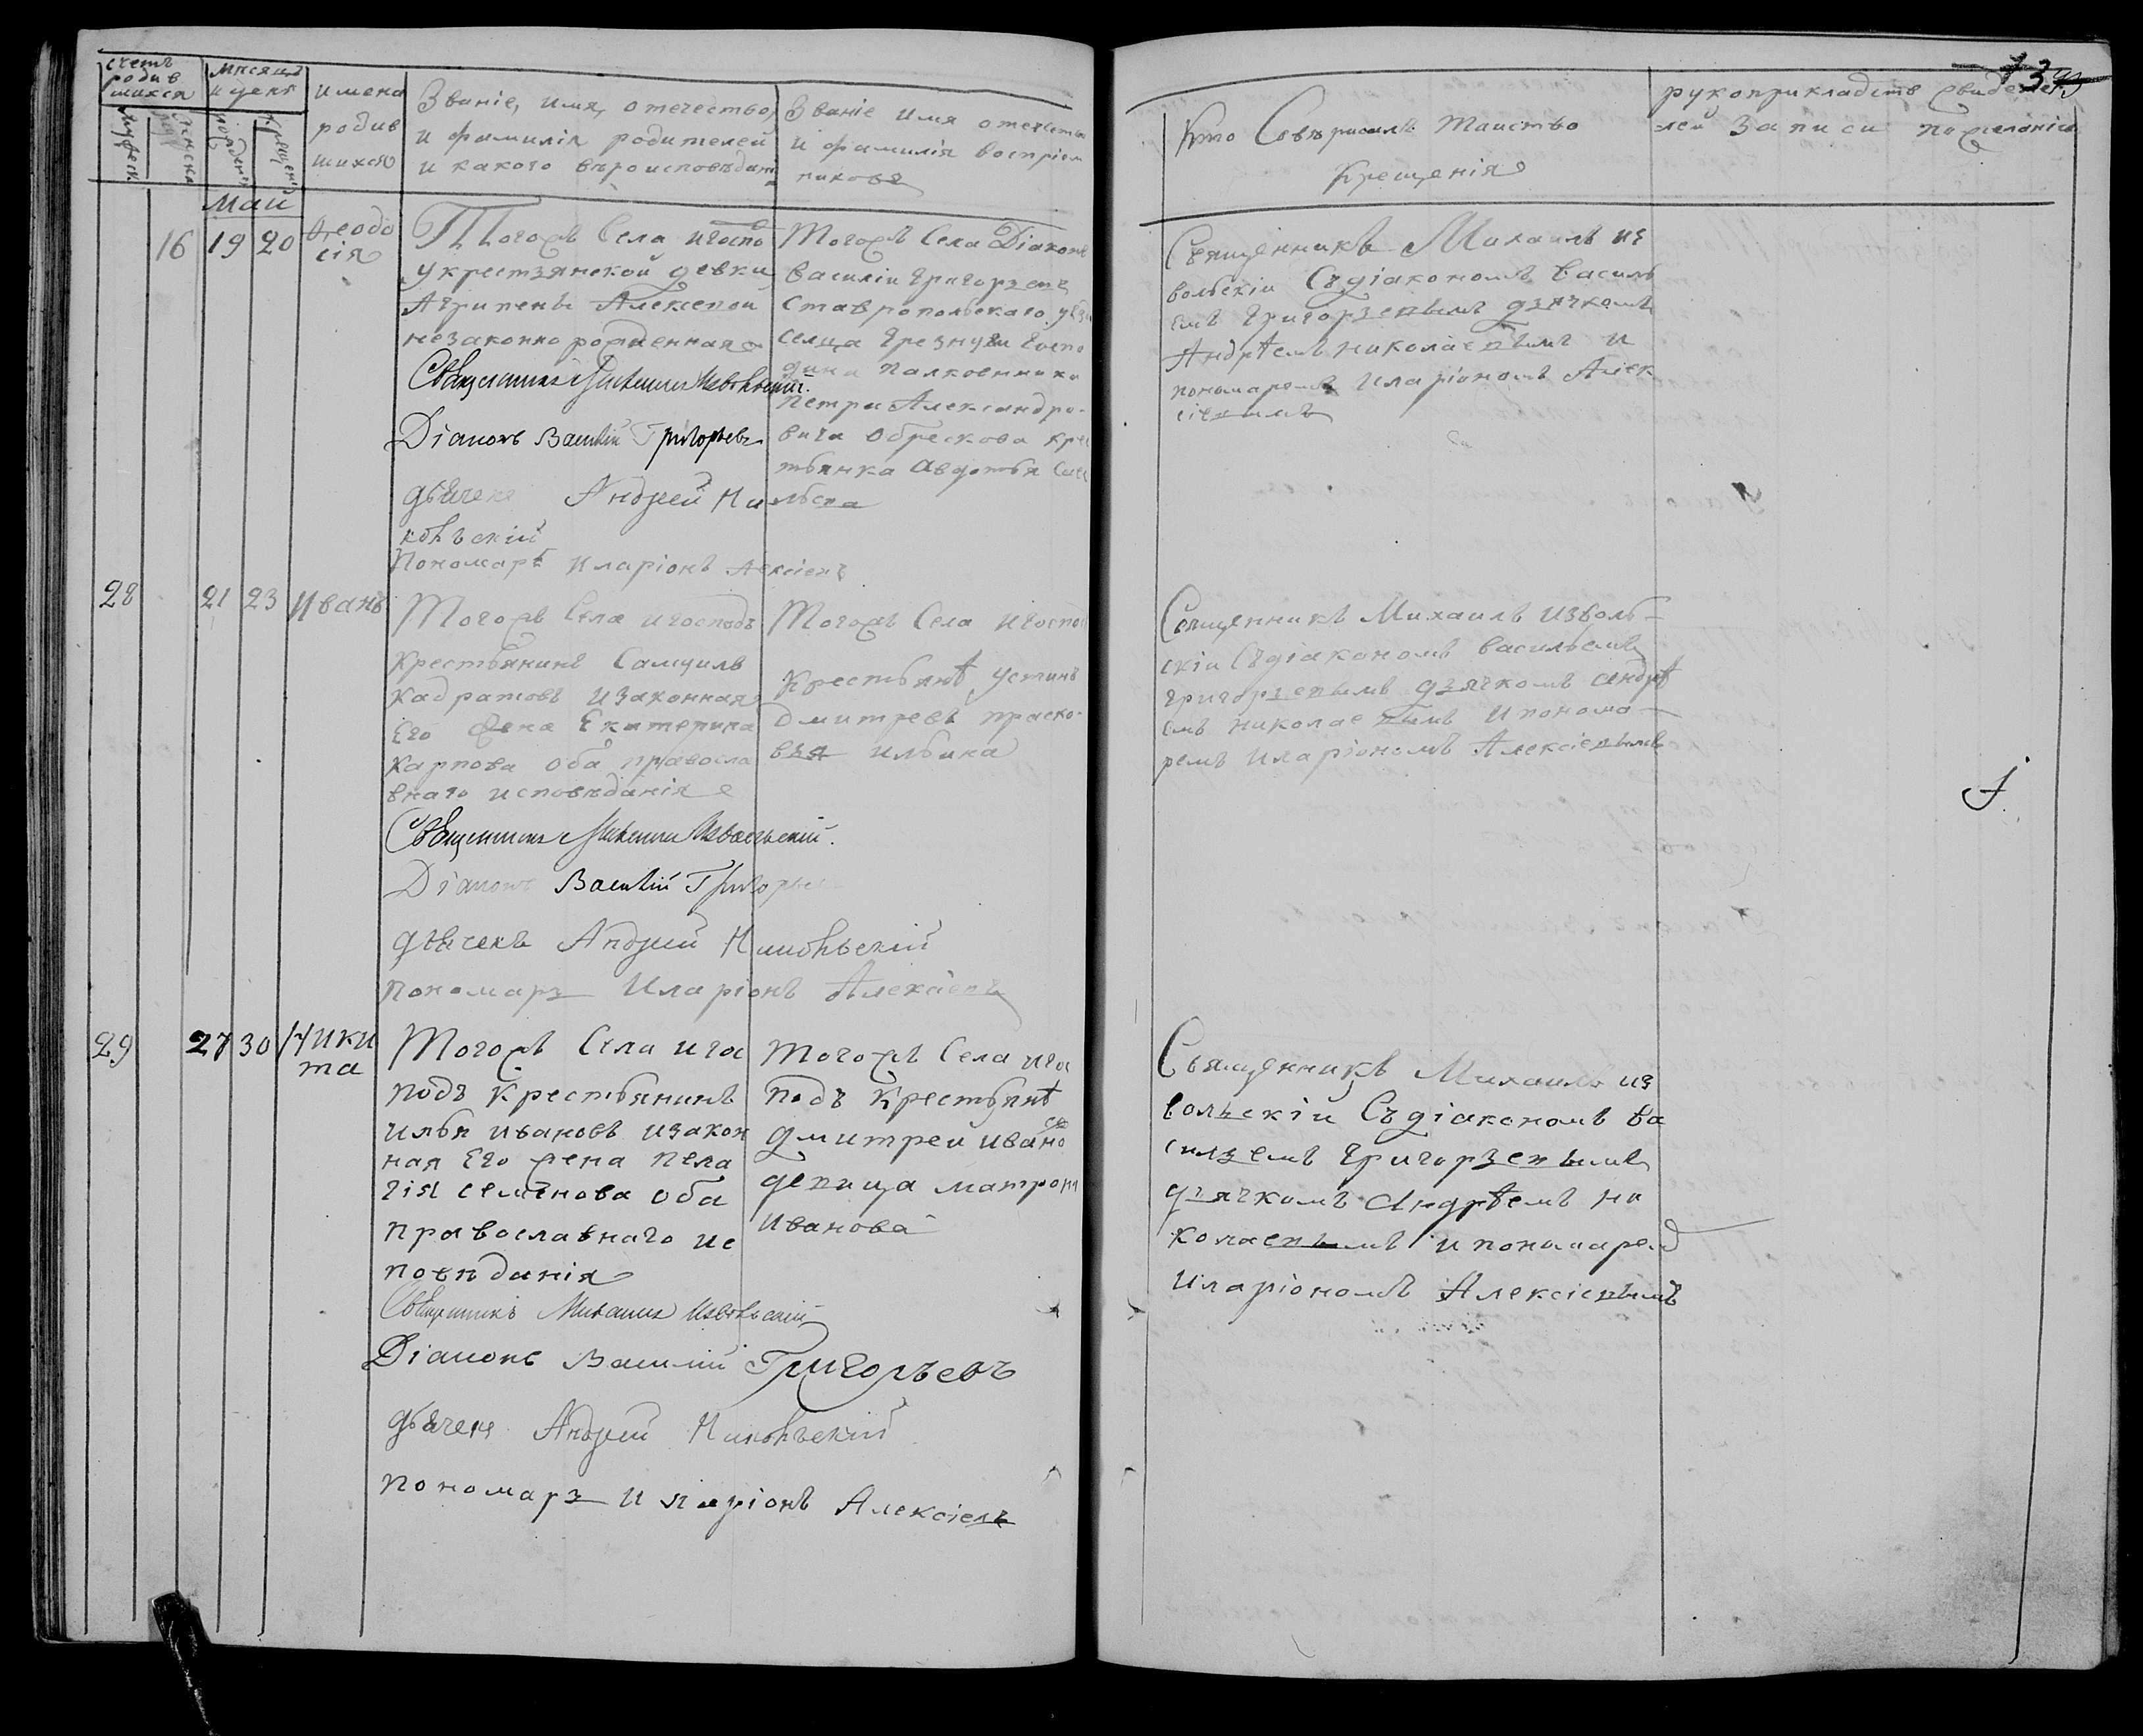 счетъ
родив
шихся
мѣсяцъ
и день
имена
родив
шихся
Званіе, имя, отечество,
и фамилія родителей
и какого вѣроисповѣдані
Званіе имя отечеств
и фамилія воспріем
никовъ
Мужеск.
Женска
рожденія
крещенія
Маи
16 19 20 Ѳеодо
сія
Тогожъ Села игоспо
укрестзянской девки
Агрипены Алексевои
незаконнорожденная
Священникъ Михаилъ Извольскій.
Діаконъ Василій Григорьевъ
дьячекъ Андрей Ни
кольскій
Пономарь Иларіонъ Алексіевъ
Тогожъ Села Діаконъ
василіи григорзевъ
ставропольскаго уѣзд
селца грезнухи госпо
дина палковника
Петра Александро-
вича обрескова кре
тьянка авдотья Саве
льева
28 21 23 Иванъ
Тогожъ Села игосподъ
крестьянинъ Самуилъ
кадратовъ изаконная
Его жена Екатерина
карпова оба правосла
внаго исповѣданія
Священникъ Михаилъ Извольскій.
Діаконъ Василій Григорьевъ
дьячекъ Андрей Никольскій
пономарз Иларіонъ Алексіевъ
Тогожъ Села игоспо
крестьянѣ устинъ
дмитревъ праско-
взя ильина
29 27 30 Ники
та
Тогожъ Села игос
подъ крестьянинъ
илья ивановъ изакон
ная Его жена пела
гія семенова оба
православнаго ис
повѣданія
Священникъ Михаилъ Извольскій
Діаконъ Василій Григорьевъ
дьячекъ Андрей Никольскій
пономарз Иларіонъ Алексіевъ
тогожъ Села игос
подъ крестьянѣ
дмитреи ивано
девица матрона
иванова
Кто Совѣршалъ таиство
Крещенія
рукоприкладств Свидете
леи записи пожеланію
Священникъ Михаилъ из
вольскіи Съдіакономъ василь
емъ григорзевымъ дзячкомъ
Андрѣемъ николаевымъ и
пономаремъ иларіономъ Алек
сіевымъ
Священникъ Михаилъ изволь-
скіи Съдіакономъ васильемъ
григорзевымъ дзячкомъ андрѣ
емъ николаевымъ ипонома-
ремъ иларіономъ Алексіевымъ
Священникъ Михаилъ из
вольскій Съдіакономъ ва
силземъ григорзевымъ
дзячкомъ андрѣемъ ни
колаевымъ ипономаремъ
иларіономъ Алексіевымъ